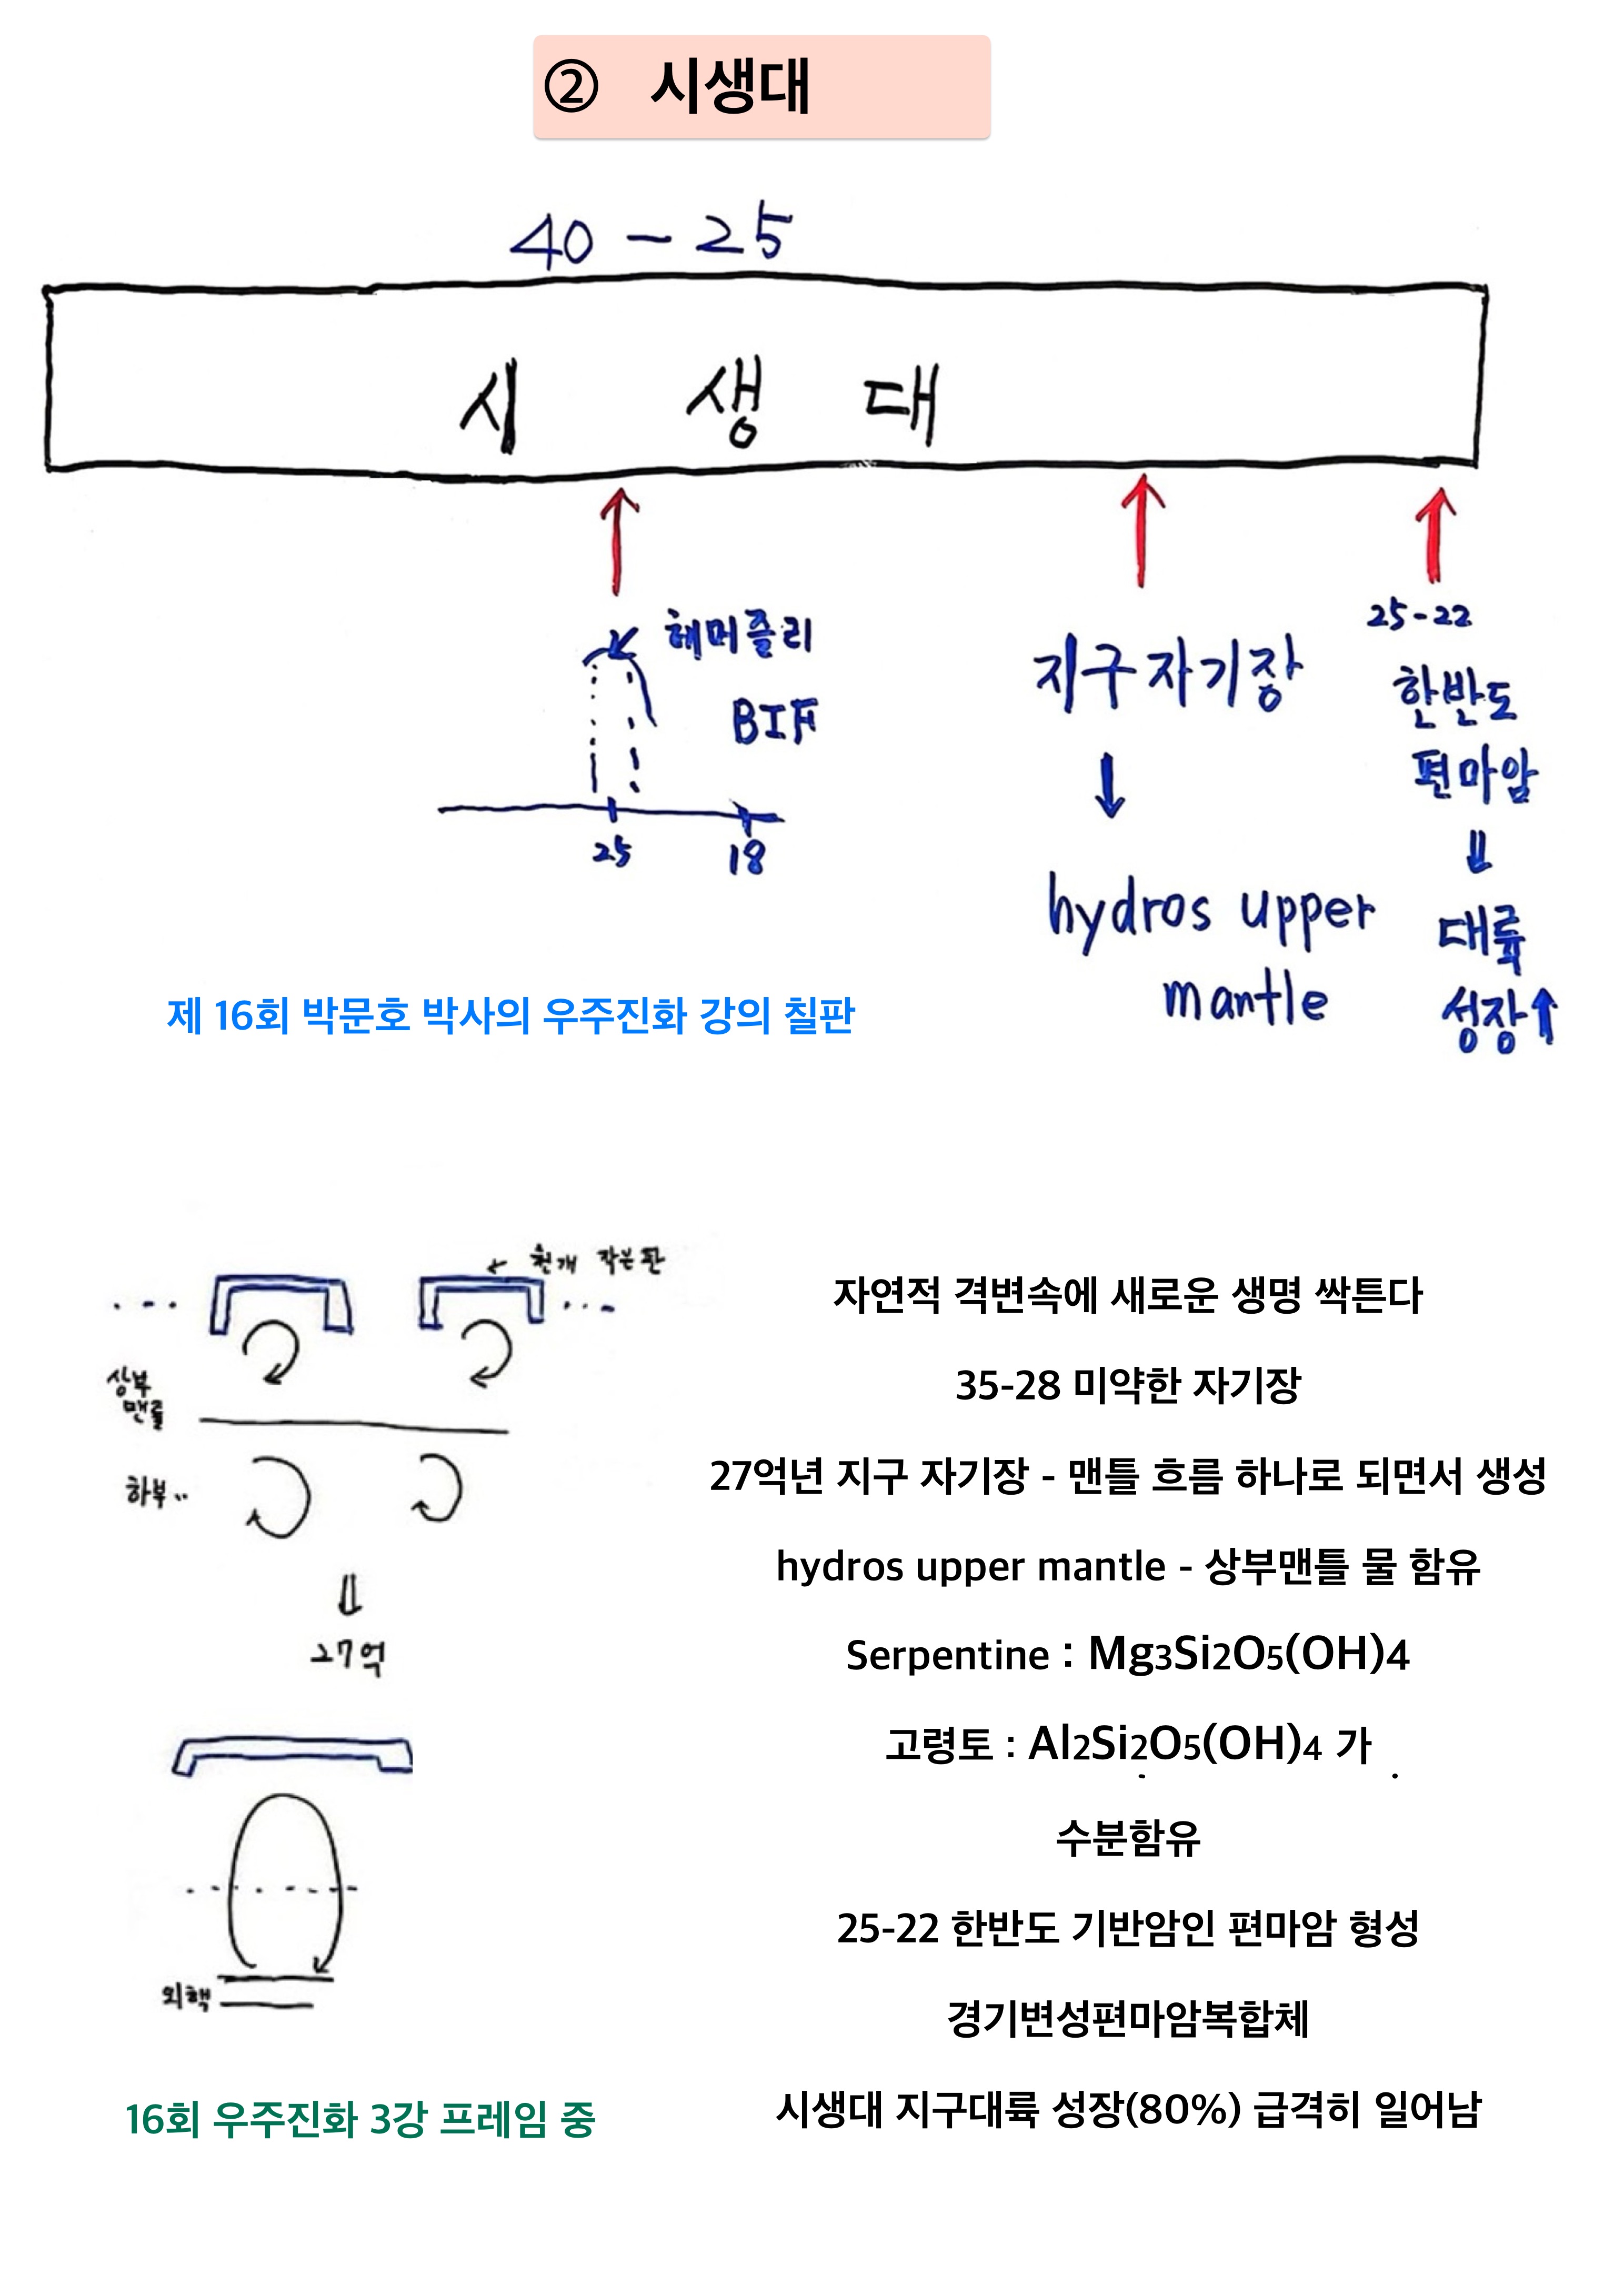 ② 시생대
40 - 25
시 생 대
해머즐리
BIF
25 18
지구자기장
hydros upper
mantle
25-22
한반도
편마암
대륙
성장
제 16회 박문호 박사의 우주진화 강의 칠판
천개 작은판
상부
맨틀
하부
27억
외핵
16회 우주진화 3강 프레임 중
자연적 격변속에 새로운 생명 싹튼다
35-28 미약한 자기장
27억년 지구 자기장 - 맨틀 흐름 하나로 되면서 생성
hydros upper mantle - 상부맨틀 물 함유
Serpentine : Mg3Si2O5(OH)4
고령토 : Al2Si2O5(OH)4 가
수분함유
25-22 한반도 기반암인 편마암 형성
경기변성편마암복합체
시생대 지구대륙 성장(80%) 급격히 일어남